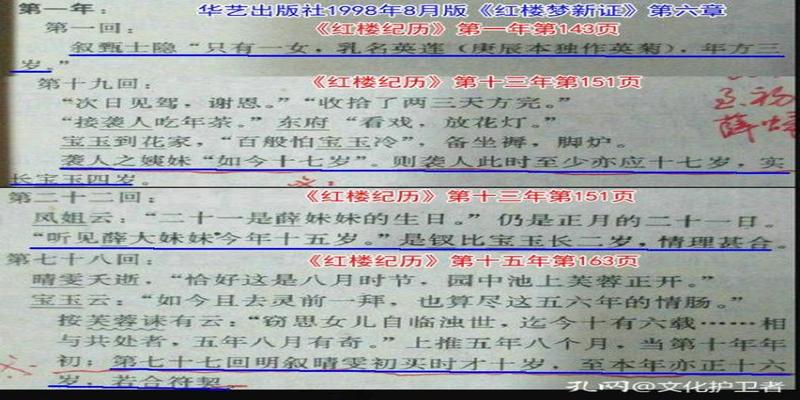 第一年： 华艺出版社1998年8月版《红楼梦新证》第六章
第一回： 《红楼纪历》第一年第143页
叙甄士隐“只有一女，乳名英莲（庚辰本独作英菊），年方三
岁。”
第十九回： 《红楼纪历》第十三年第151页
“次日见驾，谢恩。”“收拾了两三天方完。”
“接袭人吃年茶。”东府“看戏，放花灯。”
宝玉到花家，“百般怕宝玉冷”，备坐褥，脚炉。
袭人之姨妹“如今十七岁”。则袭人此时至少亦应十七岁，实
长宝玉四岁。
第二十二回： 《红楼纪历》第十三年第151页
凤姐云：“二十一是薛妹妹的生日。”仍是正月的二十一日。
“听见薛大妹妹今年十五岁。”是钗比宝玉长二岁，情理甚合。
第七十八回： 《红楼纪历》第十五年第163页
晴雯夭逝，“恰好这是八月时节，园中池上芙蓉正开。”
宝玉云：“如今且去灵前一拜，也算尽这五六年的情肠。”
按芙蓉诔有云：“窃思女儿自临浊世，迄今十有六载……相
与共处者，五年八月有奇。”上推五年八个月，当第十年年
初；第七十七回明叙晴雯初买时才十岁，至本年亦正十六
岁，若合符契
孔网@文化护卫者